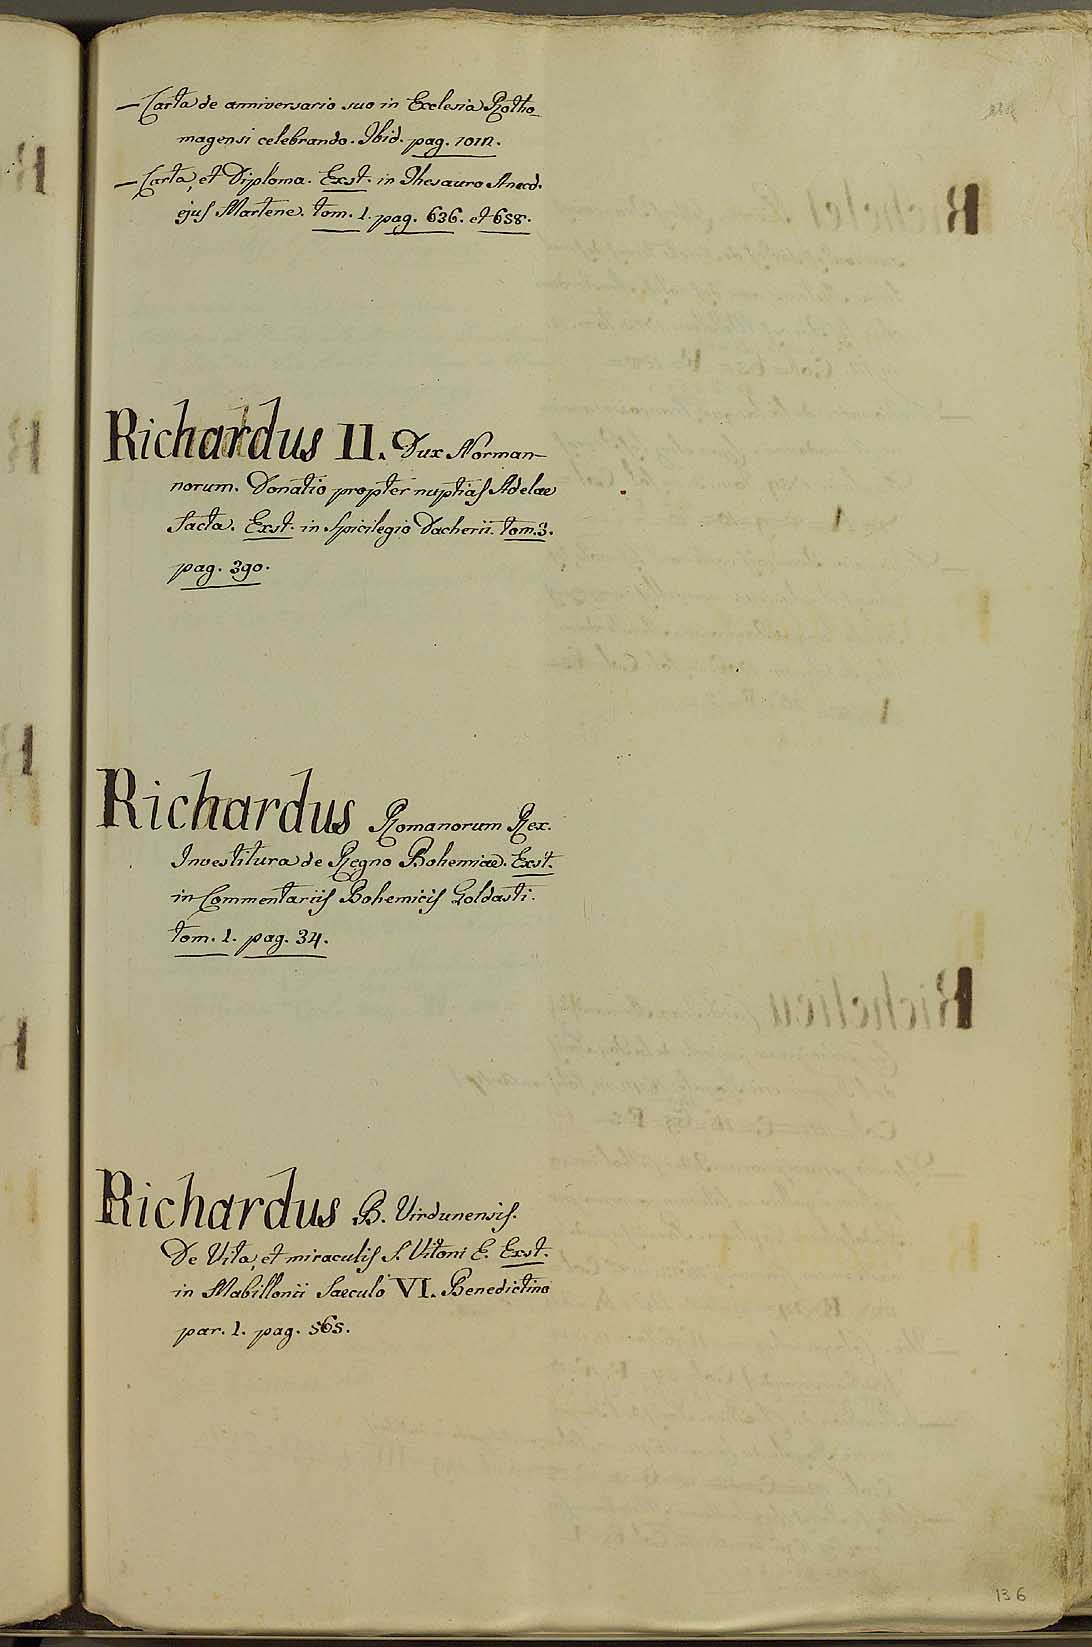 — Carta de anniversario suo in Ecclesia Rotho-
magensi celebrando. Ibid. pag.
— Carta, et Diploma. Exst. in Thesauro Anecd.
ejus Martene. tom. 1. pag. 636. et 658.
Richardus II. Dux Norman-
norum. Donatio propter nuptias Adelae
facta. Exst. in Spicilegio Dacherii. tom. 3.
pag. 390.
Richardus Romanorum Rex.
Investitura de Regno Bohemiae. Exst.
in Commentariis Bohemicis Goldasti.
tom. 1. pag. 34.
Richardus B. Virdunensis.
De Vita, et miraculis S. Vitoni E. Exst.
in Mabillonii Saeculo VI. Benedictino
par. 1. pag. 565.
136